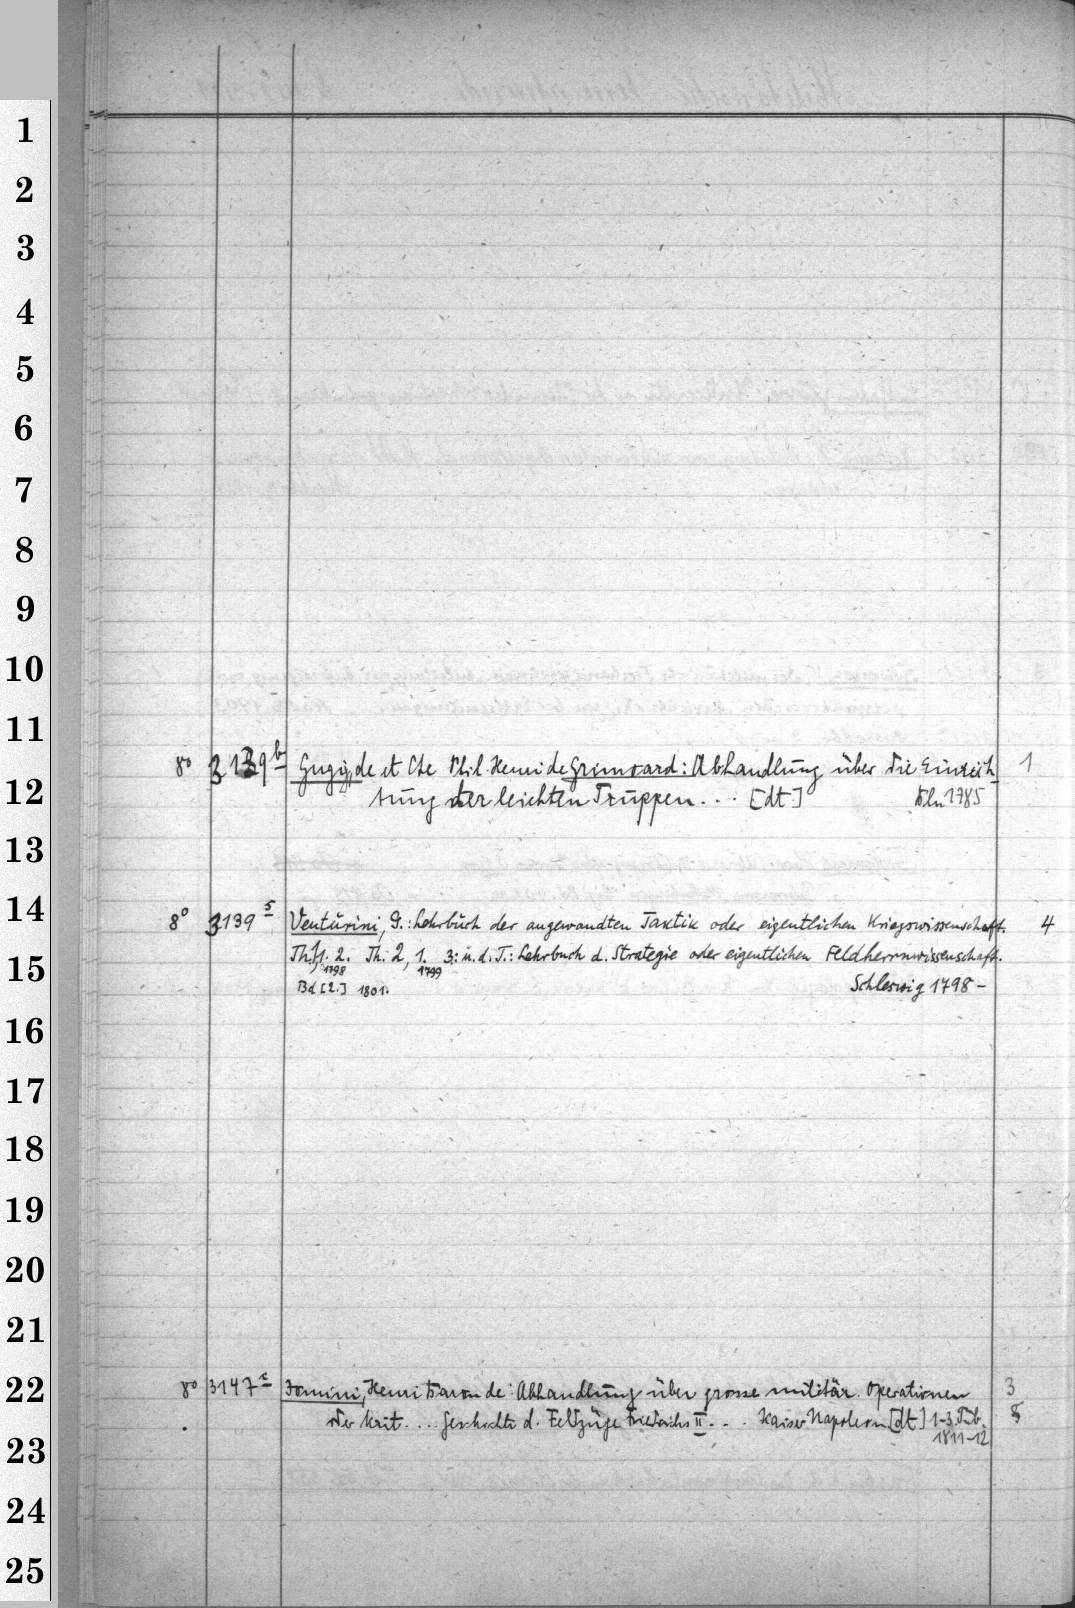 1
2
3
4
5
6
7
8
9
10
11
8° 3139 b Gugy, de et Cte Phil. Henri de Grimoard: Abhandlung über die Einrich 1
12
tung der leichten Truppen... [dt.] Kln 1785
13
14
8° 3139 s Venturini, G.: Lehrbuch der angewandten Taktik oder eigentlichen Kriegswissenschaft. 4
Th. 1, 1. 2. Th. 2, 1. 3: u. d. T.: Lehrbuch d. Strategie oder eigentlichen Feldherrnwissenschaft.
15
1798 1799
Bd [2.] 1801. Schleswig 1798 –
16
17
18
19
20
21
22
8° 3147 c Jomini, Henri Baron de: Abhandlung über grosse militär. Operationen 3
der krit.... Geschichte d. Feldzüge Friedrichs II... Kaiser Napoleon [dt] 1-3. Tüb.
1811-12
23
24
25